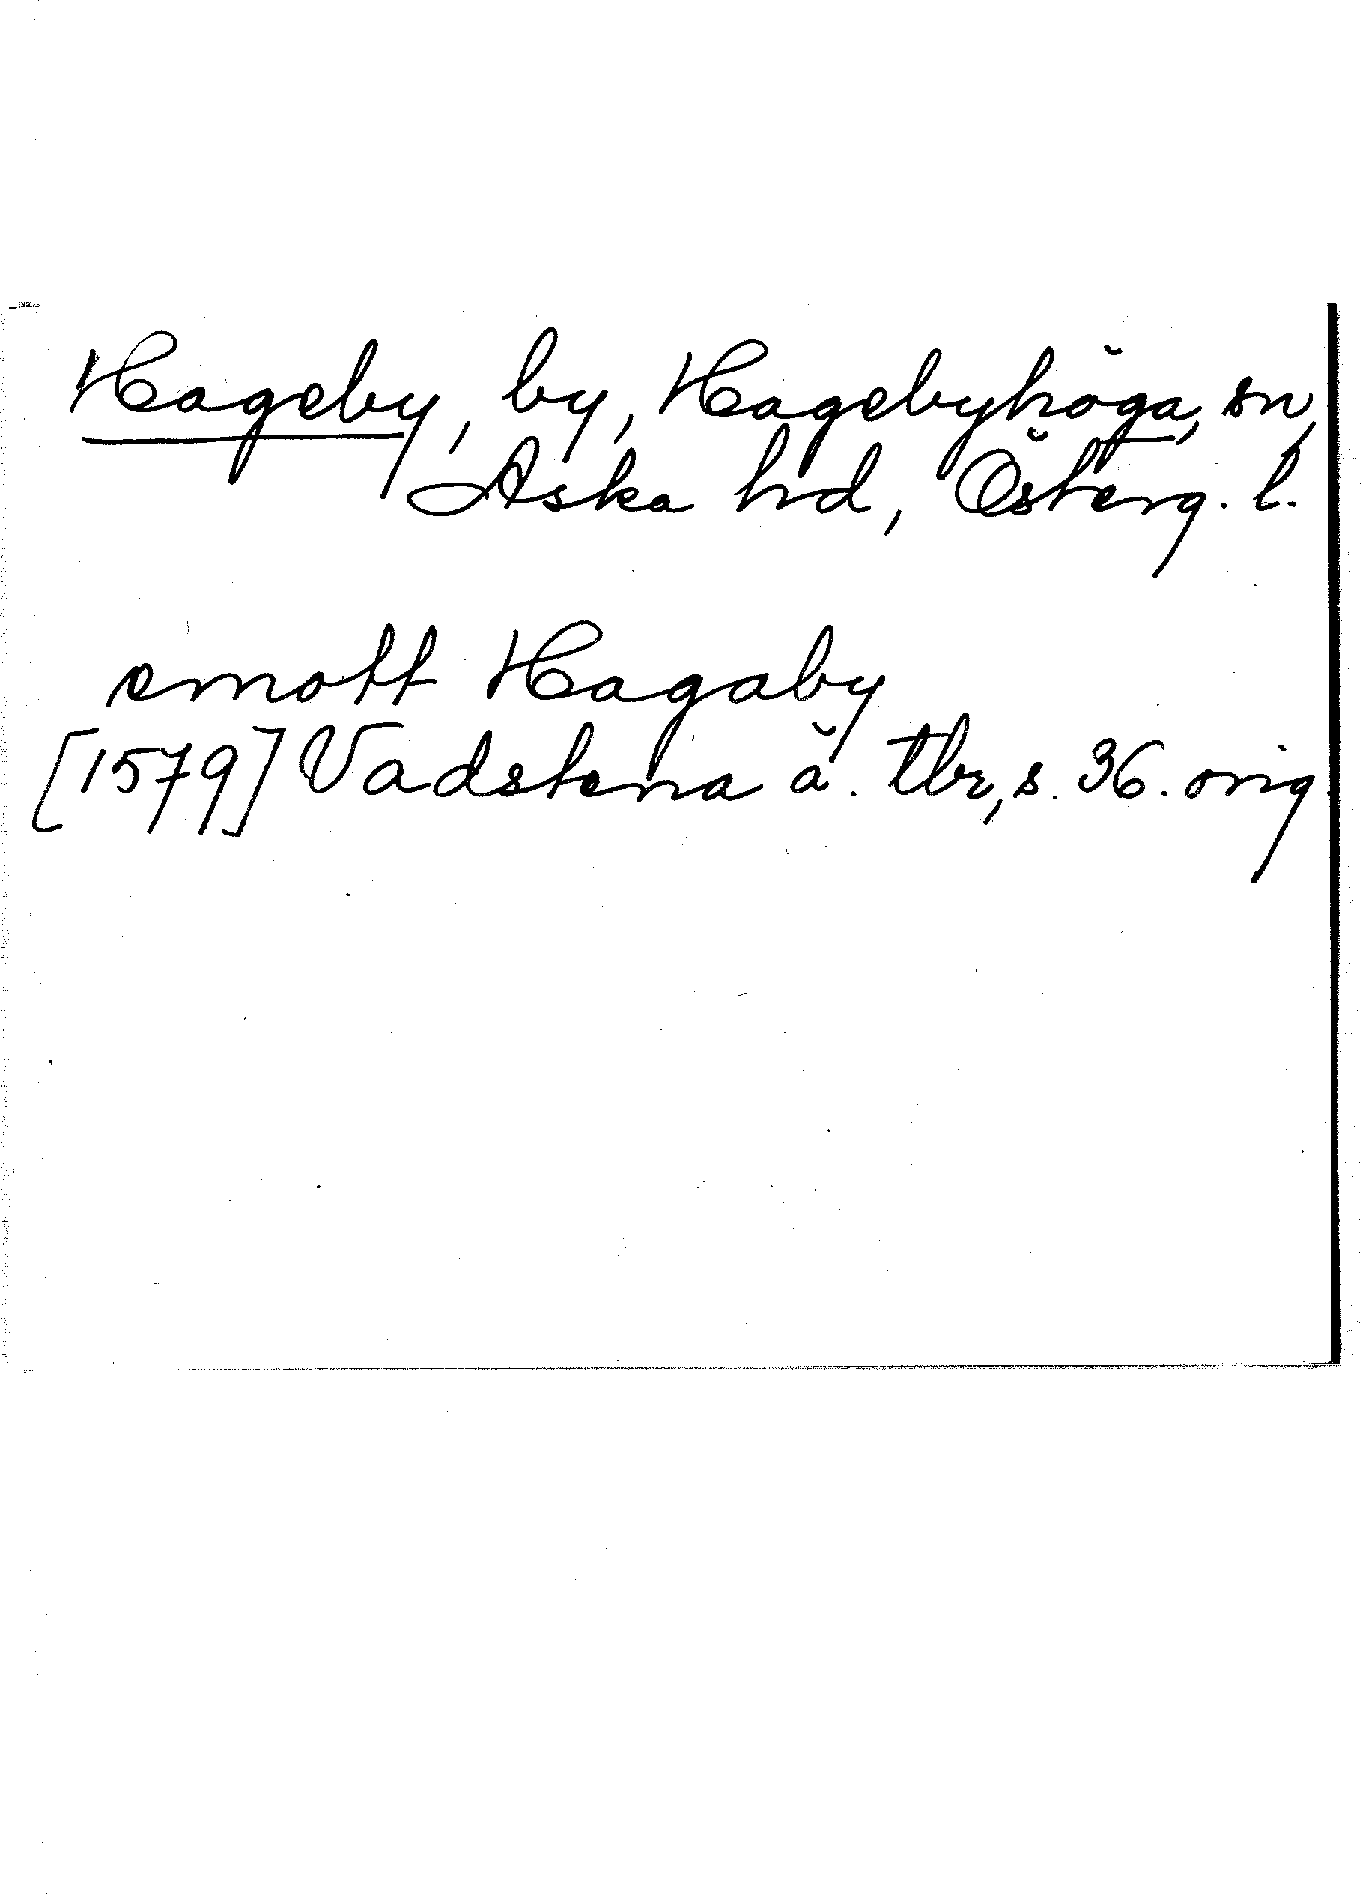 Hageby, by, Hagebyhöga, sn,
Aska hd, Österg. l.
emott Hagaby
[1579] Vadstena ä. tbr, s. 36. orig.